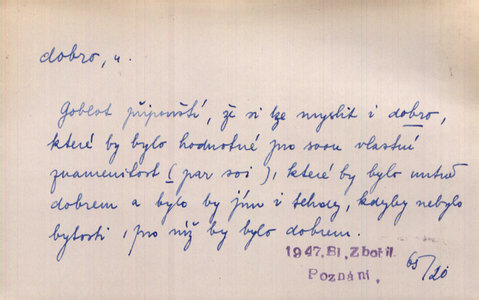 dobro, n.
Goblot připouští, že si lze myslit i dobro,
které by bylo hodnotné pro svou vlastní
znamenitost (par soi), které by bylo nutně
dobrem a bylo by jím i tehdy, kdyby nebylo
bytosti, pro níž by bylo dobrem.
1947, Bl. Zbořil,
Poznání,
65/20